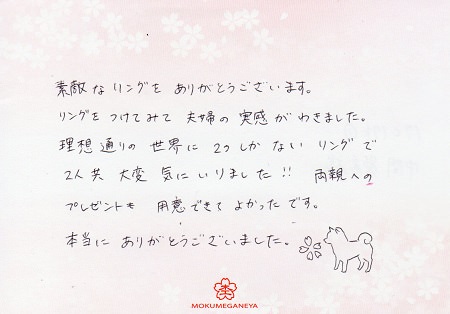 素敵なリングを ありがとうございます。
リングをつけてみて 夫婦の 実感が わきました。
理想通りの 世界に 2つしか ない リングで
2人共 大変 気に いりました!! 両親への
プレゼントも 用意できて よかったです。
本当に ありがとうございました。
MOKUMEGANEYA